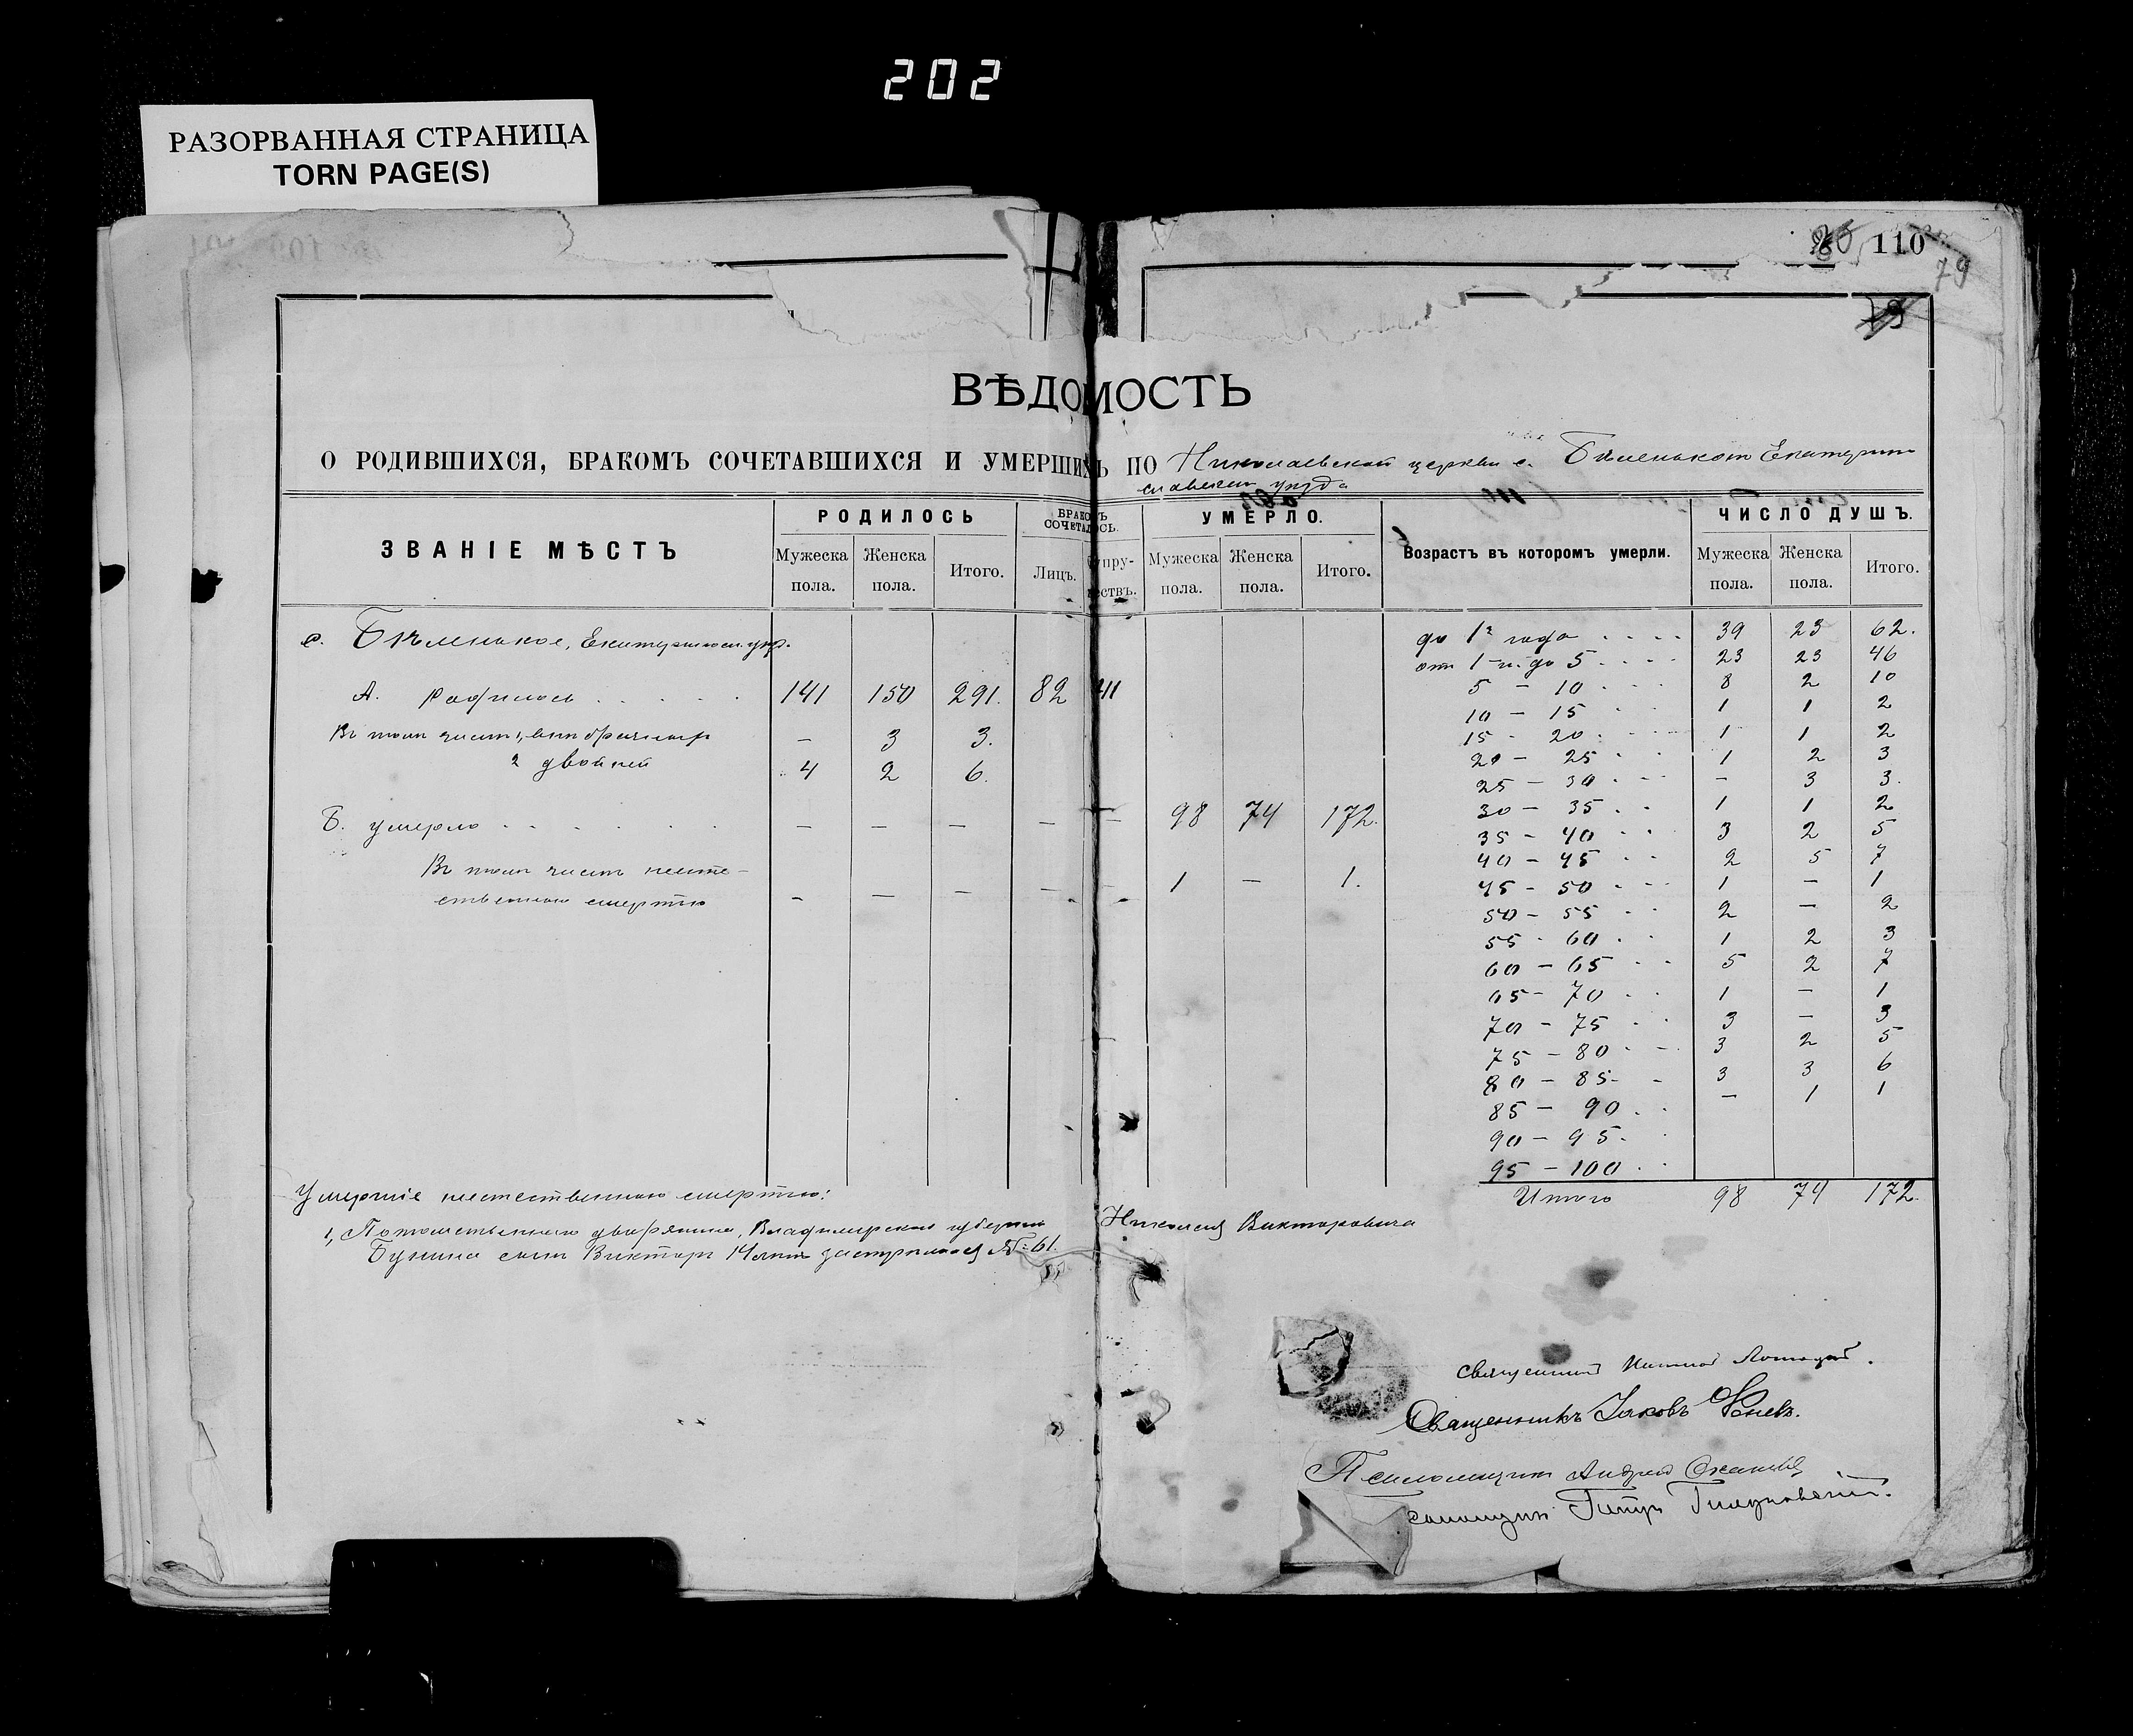 202
РАЗОРВАННАЯ СТРАНИЦА
TORN PAGE(S)
110
79
ВѢДОМОСТЬ
О РОДИВШИХСЯ, БРАКОМЪ СОЧЕТАВШИХСЯ И УМЕРШИХЪ ПО Николаевской церкви с. Бѣленькаго Екатерино
славскаго уѣзда
ЗВАНІЕ МѢСТЪ
РОДИЛОСЬ
Мужеска пола. Женска пола. Итого.
БРАКОМЪ СОЧЕТАЛОСЬ.
Лицъ. Супружествъ.
УМЕРЛО.
Мужеска пола. Женска пола. Итого.
Возрастъ въ которомъ умерли.
ЧИСЛО ДУШЪ.
Мужеска пола. Женска пола. Итого.
с. Бѣленькое, Екатериносл. уѣз.
А. Родилось 141 150 291. 82 41
Въ томъ числѣ 1, внѣбрачныхъ — 3 3.
2 двойней 4 2 6.
Б. умерло — — — — — 98 74 172.
Въ томъ числѣ неесте-
ственною смертію — — — — — 1 — 1.
до 1го года 39 23 62.
от 1 г. до 5 23 23 46
5 — 10 8 2 10
10 — 15 1 1 2
15 - 20 1 1 2
20 — 25 1 2 3
25 — 30 — 3 3.
30 — 35 1 1 2
35 — 40 3 2 5
40 — 45 2 5 7
45 — 50 1 — 1
50 — 55 2 — 2
55 - 60 1 2 3
60 — 65 5 2 7
65 — 70 1 — 1
70 — 75 3 — 3
75 — 80 3 2 5
80 — 85 3 3 6
85 — 90 — 1 1
90 — 95
95 — 100
Итого 98 74 172.
Умершіе неестественною смертію:
1, Потомственнаго дворянина, Владимирской губерніи Николая Викторовича
Бунина сынъ Викторъ 14 лѣтъ застрѣлился № 61.
Священникъ
Священникъ Іаковъ
Псаломщикъ Андрей
Псаломщикъ Петръ